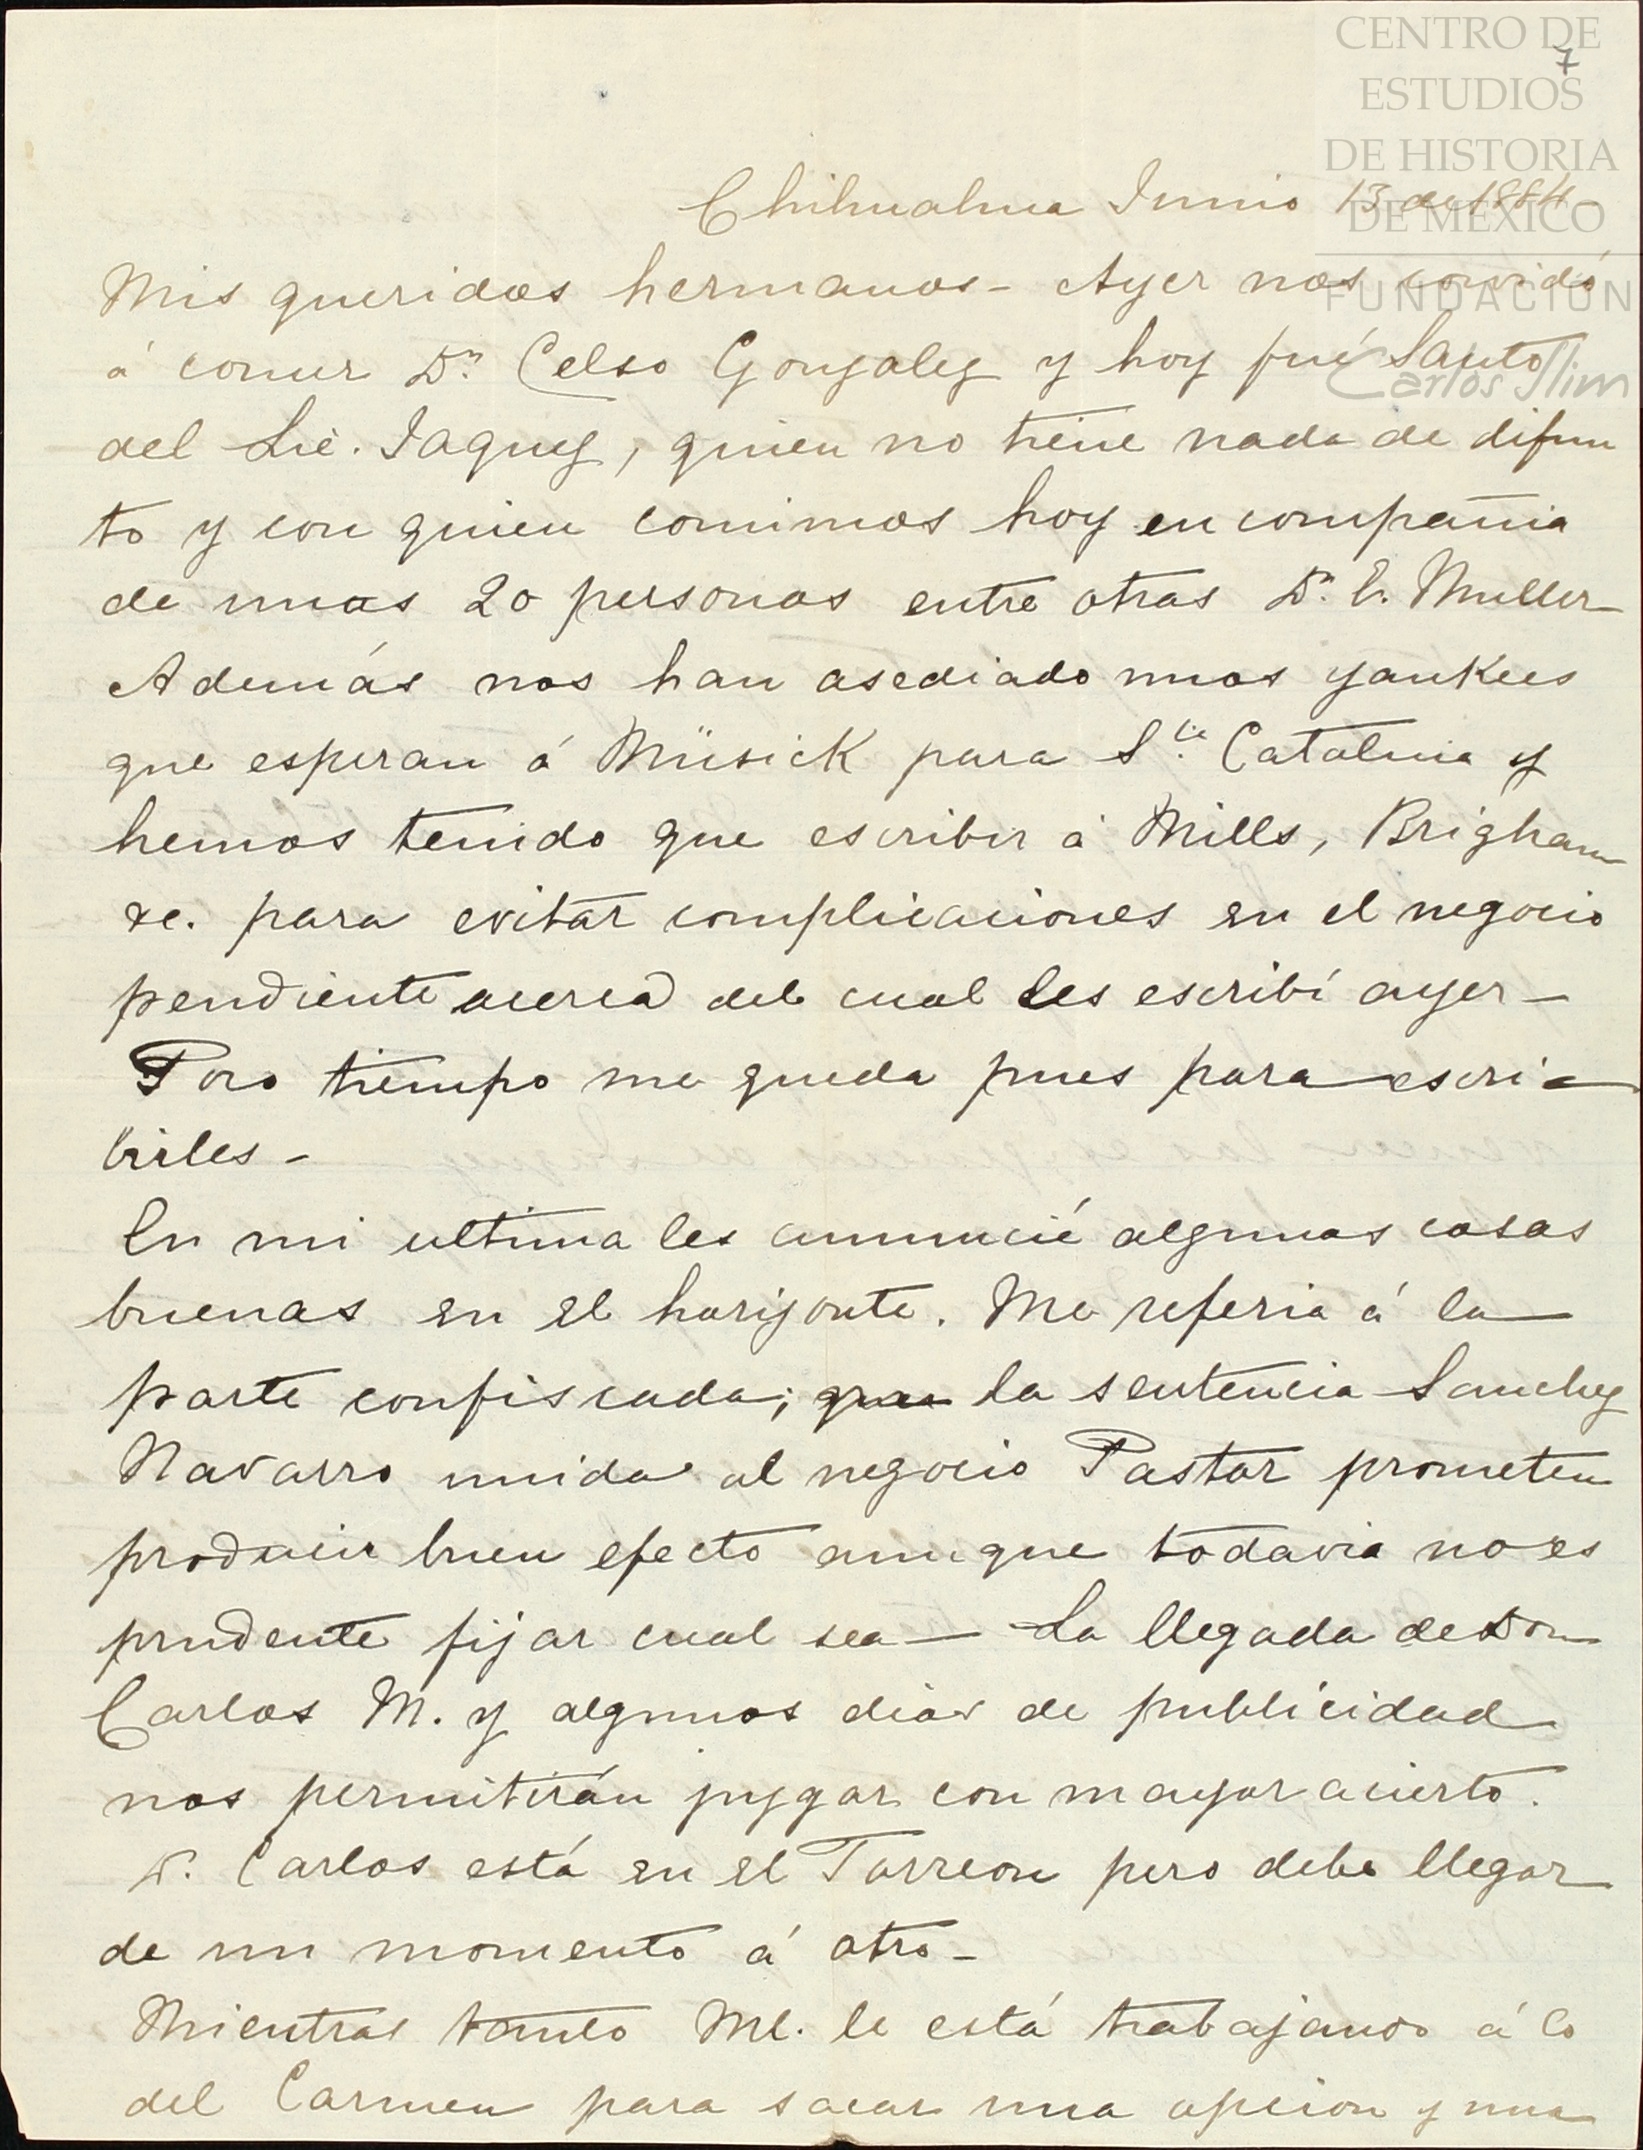 CENTRO DE
ESTUDIOS
DE HISTORIA
DE MÉXICO
FUNDACIÓN
Carlos Slim
7
Chihuahua Junio 13 de 1884 -
Mis queridos hermanos - Ayer nos convidó
á comer Dn. Celso Gonzalez y hoy fué Santo
del Lic. Jaquez, quien no tiene nada de difun
to y con quien comimos hoy en compañia
de unas 20 personas entre otras Dn. E. Muller
Además nos han asediado unos yankees
que esperan á Müsick para Sta. Catalina y
hemos tenido que escribir á Mills, Brigham
&c. para evitar complicaciones en el negocio
pendiente acerca del cual les escribí ayer -
Poco tiempo me queda pues para escri-
birles -
En mi ultima les anuncié algunas cosas
buenas en el horizonte. Me referia á la
parte confiscada; la sentencia Sanchez
Navarro unida al negocio Pastor prometen
producir buen efecto aunque todavia no es
prudente fijar cual sea - La llegada de Don
Carlos M. y algunos dias de publicidad
nos permitirán juzgar con mayor acierto.
D. Carlos está en el Torreon pero debe llegar
de un momento á otro -
Mientras tanto Ml. le está trabajando á lo
del Carmen para sacar una opcion y una